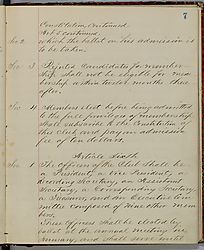 7
Constitution, Continued
Art 5 continued
Sec 2 which the ballot on his admission is
to be taken.
Sec 3. Rejected Candidates for member-
ship shall not be eligible for mem-
bership within twelve months there
after.
Sec 4. Members elect before being admitted
to the full privileges of membership
shall subscribe to the Constitution of
this Club and pay an admission
fee of ten dollars.
Article Sixth
Sec 1. The Officers of the Club shall be
a President, a Vice President, a
Recording Secretary, an Assistant
Secretary, a Corresponding Secretary,
a Treasurer, and an Executive Com-
mittee composed of other mem-
bers.
These Officers shall be elected by
ballot at the annual meeting in
January, and shall serve until